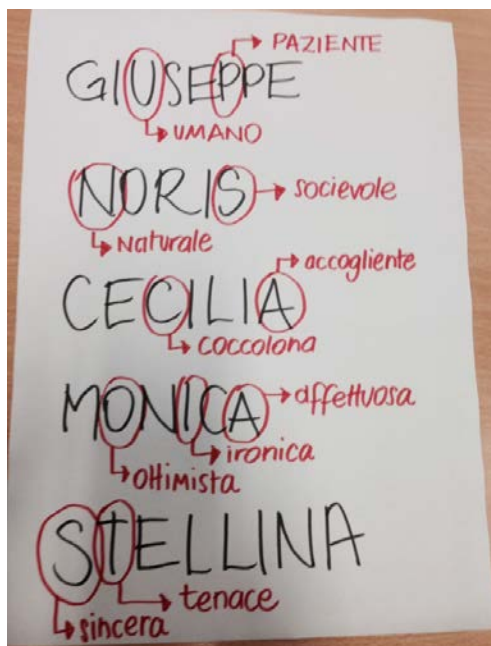 PAZIENTE
GIUSEPPE
UMANO
NORIS socievole
Naturale
accogliente
CECILIA
coccolona
MONICA affettuosa
ironica
ottimista
STELLINA
tenace
sincera